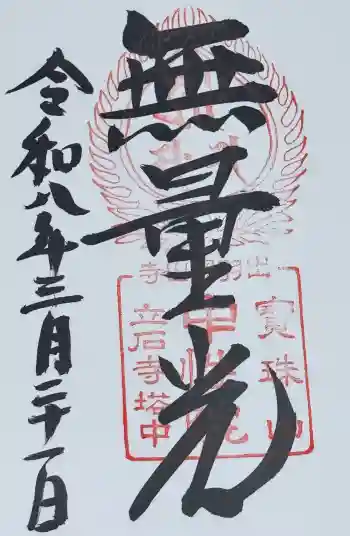 無量光
令和八年三月二十一日
寶珠山
立石寺塔中